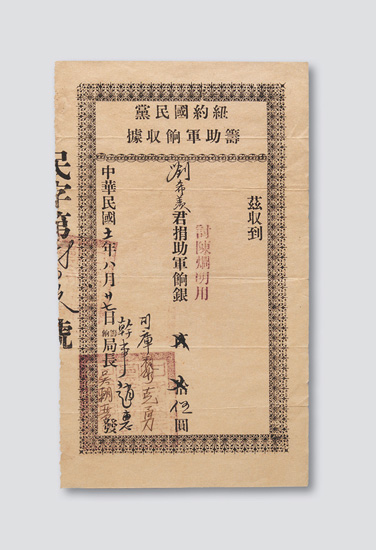 紐約國民黨
籌助軍餉收據
茲收到
討陳烱明用
劉希羨君捐助軍餉銀 拾伍圓
司庫
幹事趙惠
中華民國十一年八月廿七日籌餉局長 發
民字第 號